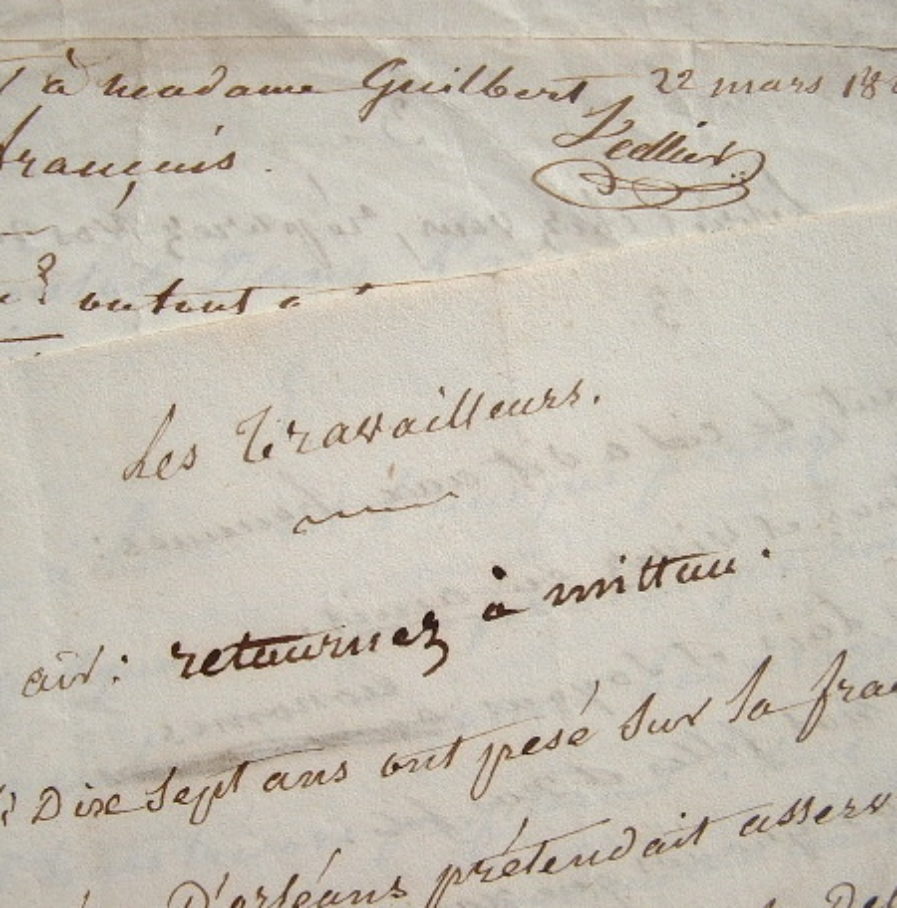 à madame Guilbert 22 mars 18
français.
ontent a
Les Travailleurs.
air: retournez à mittau.
Dixe Sept ans ont pesé sur la fra
D'orléans prétendait asserv